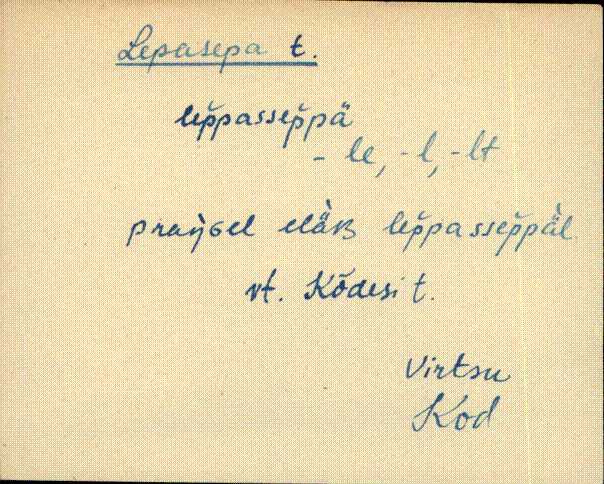 Lepasepa t.
lep̆passep̆pä
- le, - l, - lt
praŋ̀ɢel eläʙ̀ lep̆passep̆päl
vt. Kõdesi t.
Virtsu
Kod